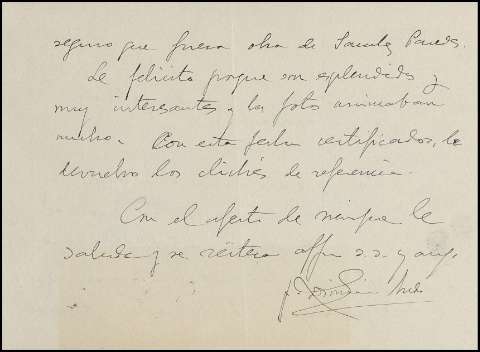 seguro que fuera obra de Sánchez Pareds.
Le felicito porque son esplendidos y
muy interesantes y las fotos animaban
mucho. Con esta fecha certificados, le
devuelvo los clichés de referencia.
Con el afecto de siempre le
saluda y se reitera affmo s.s. y amigo,